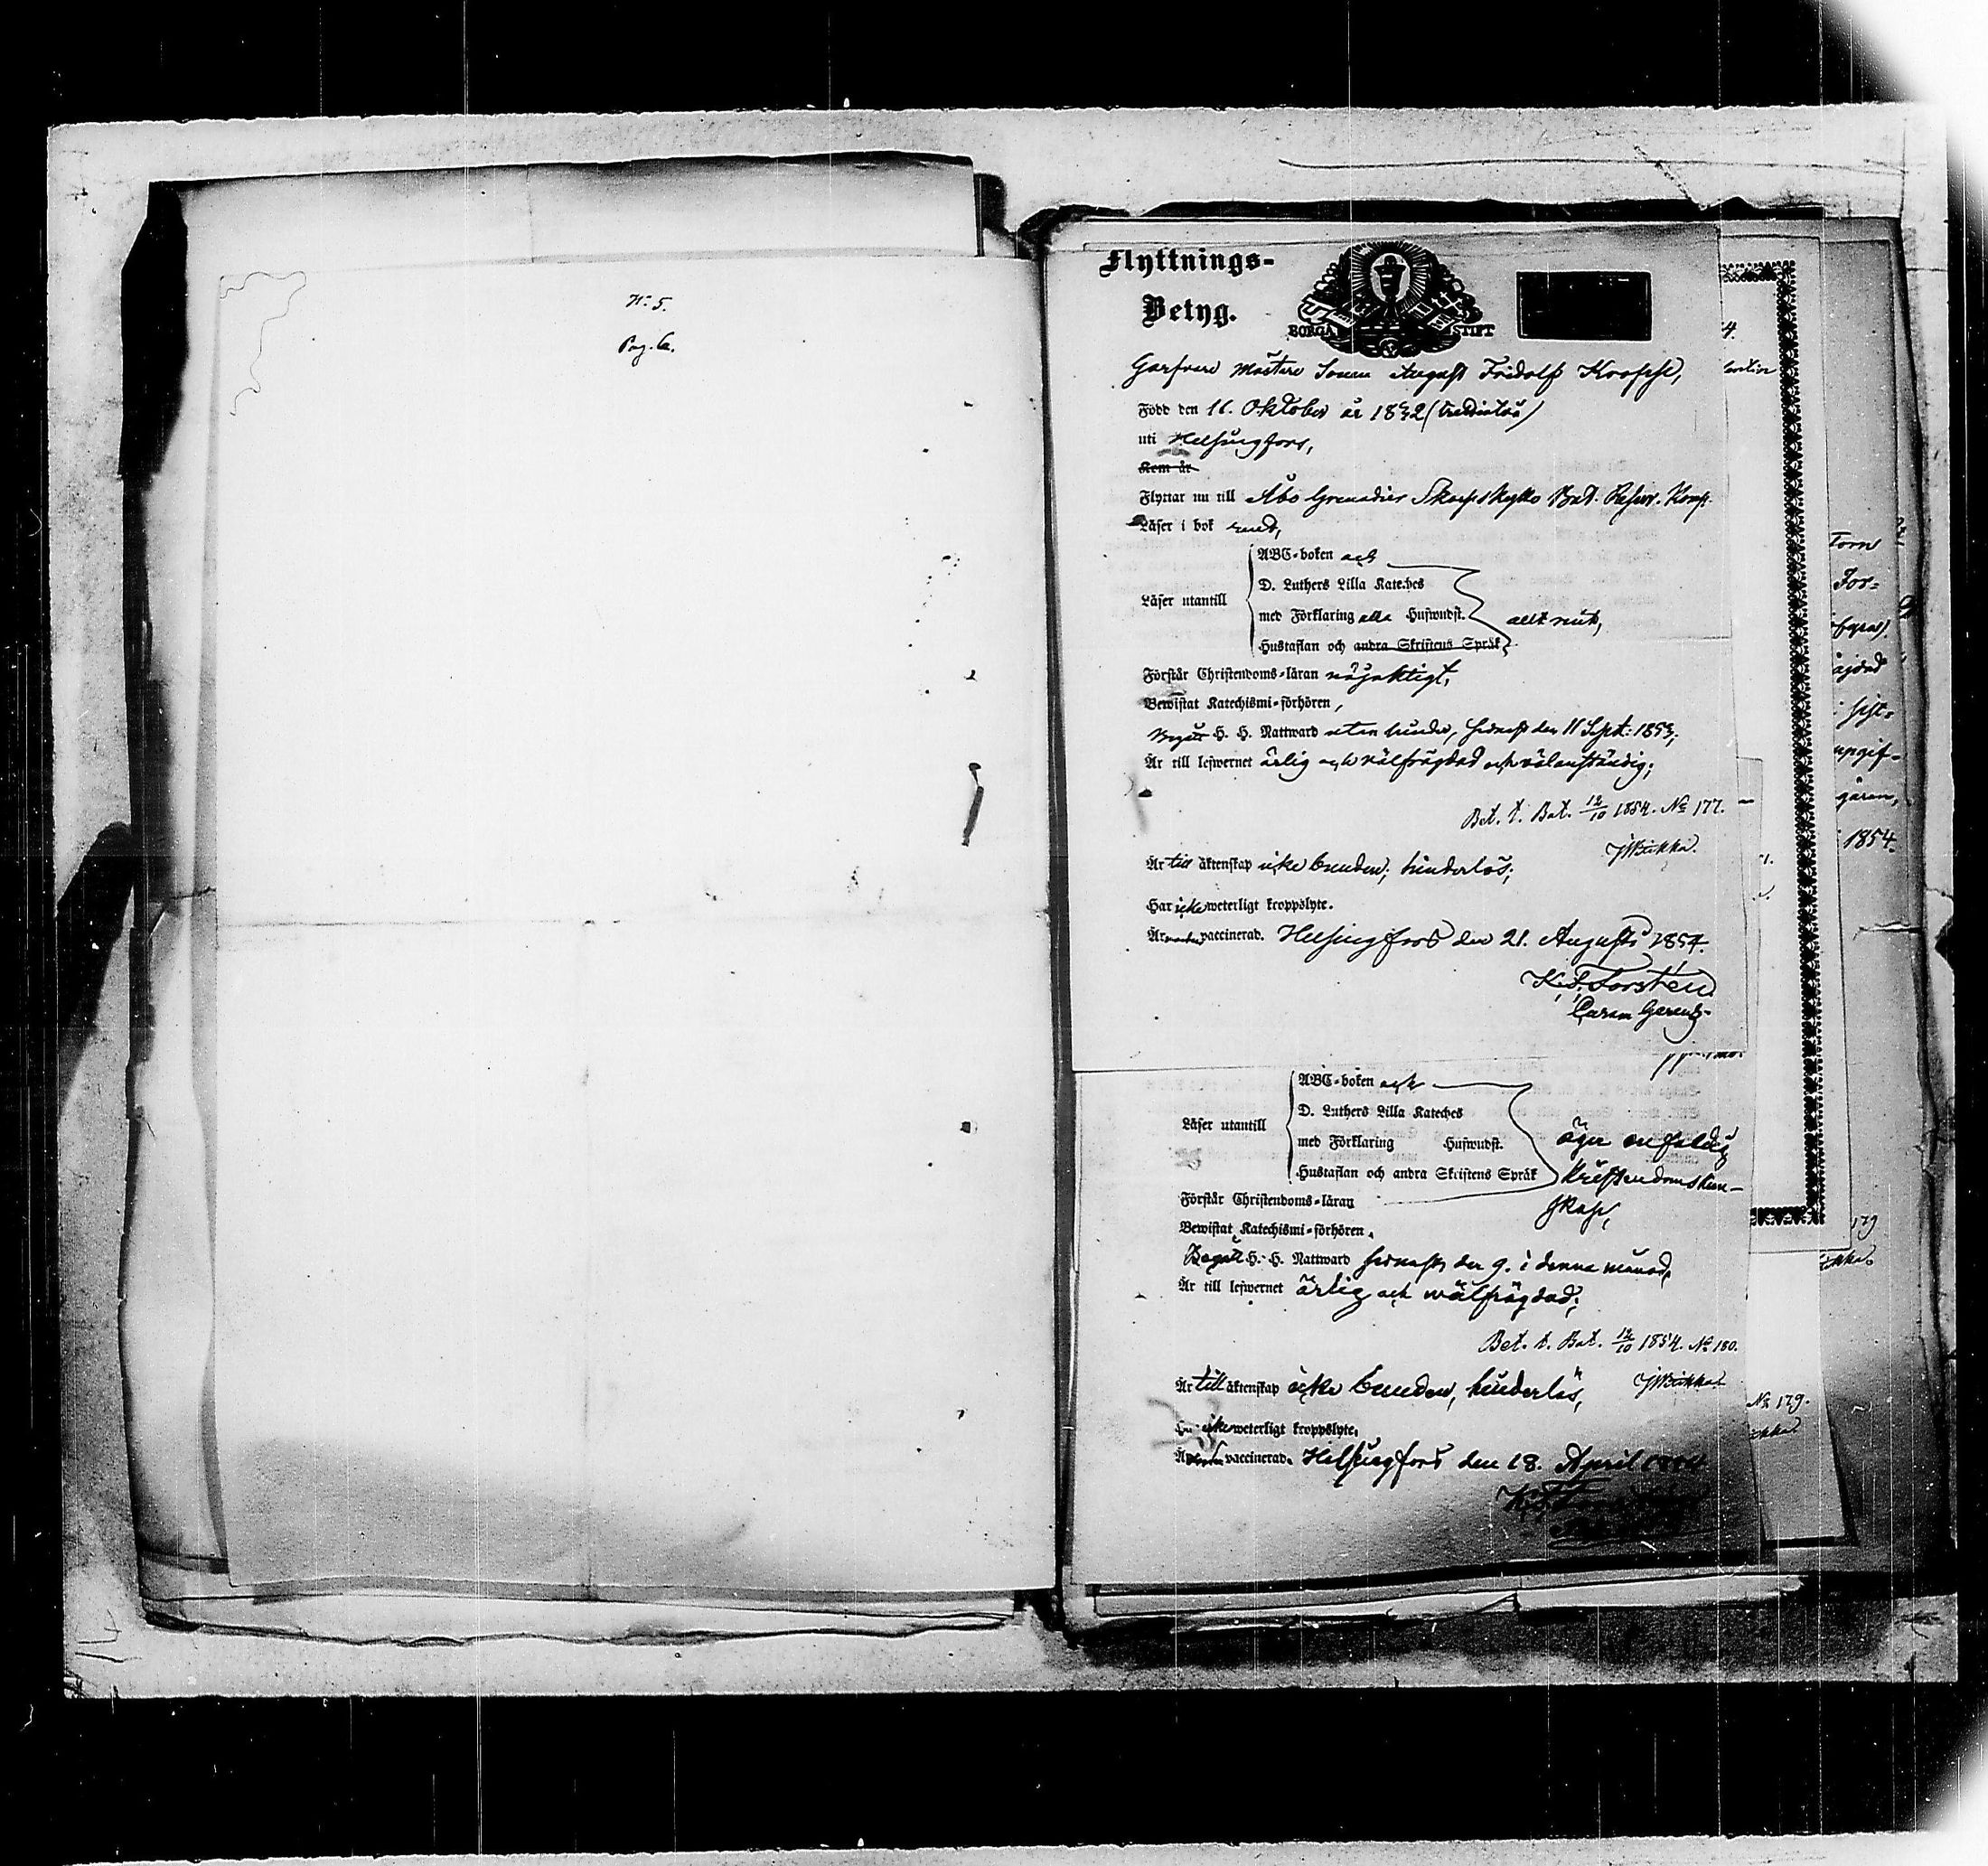 N:o 5.
Pag. 6.
Flyttnings-
Betyg.
BORGÅ STIFT
Garfvare Mästare Sonen August Fridolf
Född den 16. Oktober år 1832
uti Helsingfors,
Kom år
Flyttar nu till Åbo Grenadier Skarpskytte Bat. Reserv. Komp.
Läser i bok rent,
ABC-boken och
D. Luthers Lilla Kateches
Läser utantill
med Förklaring alla Huswudst.
allt rent,
Hustaflan och andra Skriftens Språk
Förstår Christendoms-läran nöjaktigt,
Bewistat Katechismi-förhören,
Begått H. H. Nattward utan hinder, sednast den 11 Sept: 1853,
Är till lefwernet ärlig och välfrägdad och välanständig;
Bet. t. Bat. 12/10 1854. No 177.
Är till äktenskap icke bunden; hinderlös;
Har icke weterligt kroppslyte.
Är vaccinerad. Helsingfors den 21. Augusti 1854.
K. F. Forstén
1854.
ABC-boken och
D. Luthers Lilla Kateches
Läser utantill
med Förklaring Huswudst.
äger enfaldig
Hustaflan och andra Skriftens Språk
Kristendomskun-
skap,
Förstår Christendoms-läran
Bewistat Katechismi-förhören,
Begått H. H. Nattward sednast den 9. i denna månad,
Är till lefwernet ärlig och wälfrägdad;
Bet. t. Bat. 12/10 1854. No 180.
Är till äktenskap icke bunden, hinderlös,
No 179.
icke weterligt kroppslyte,
vaccinerad. Helsingfors den 18. April